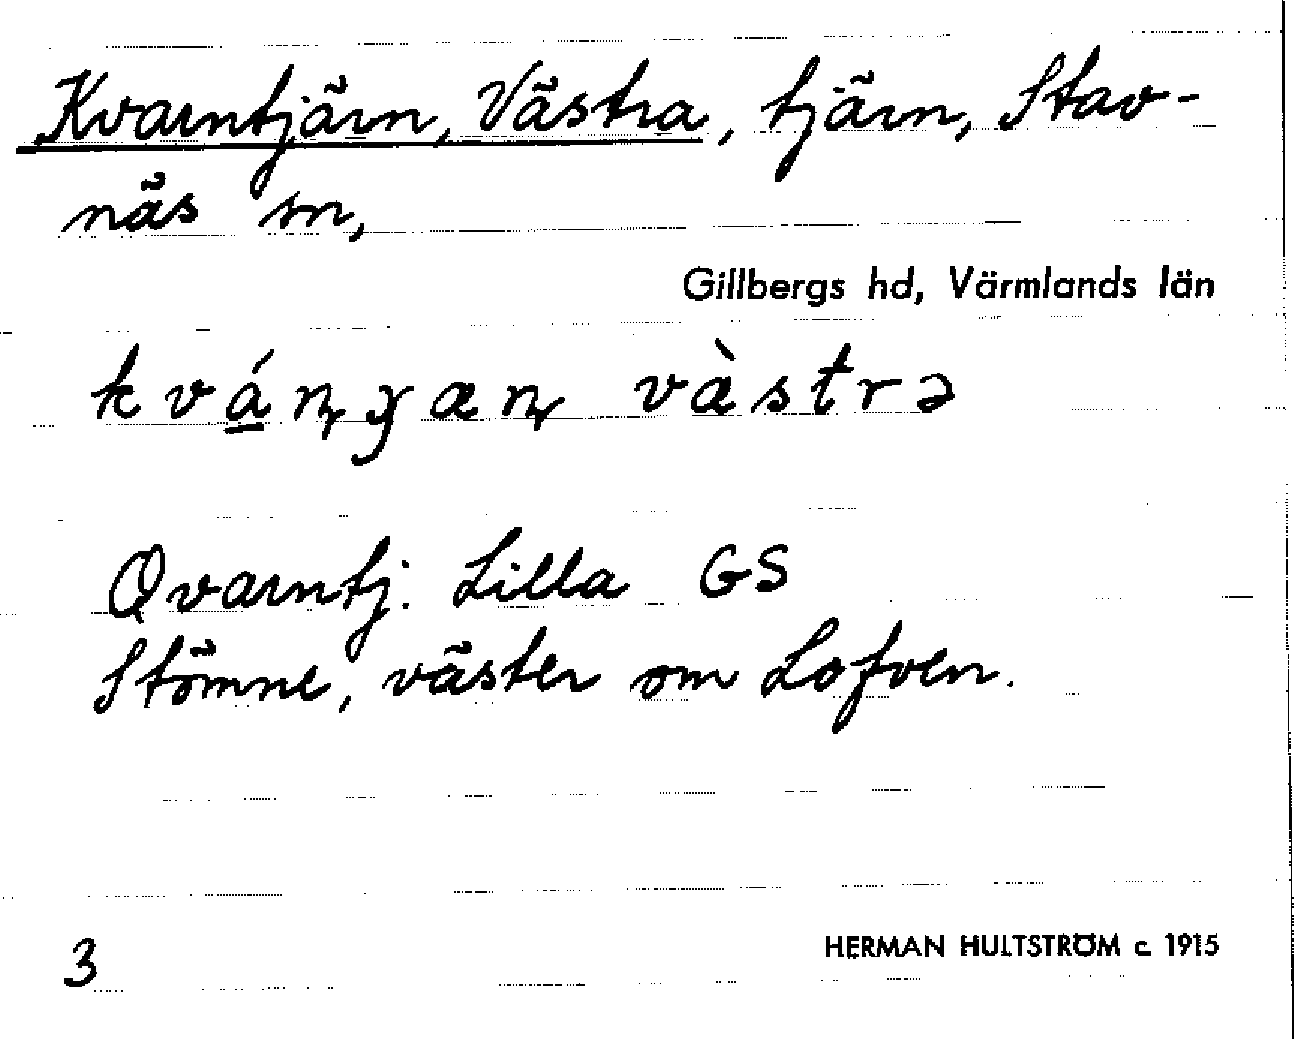 Kvarntjärn, Västra, tjärn, Stav-
näs sn,
Gillbergs hd, Värmlands län
västrə
Qvarntj. Lilla GS
Stömne, väster om Lofven.
3
HERMAN HULTSTRÖM c. 1915